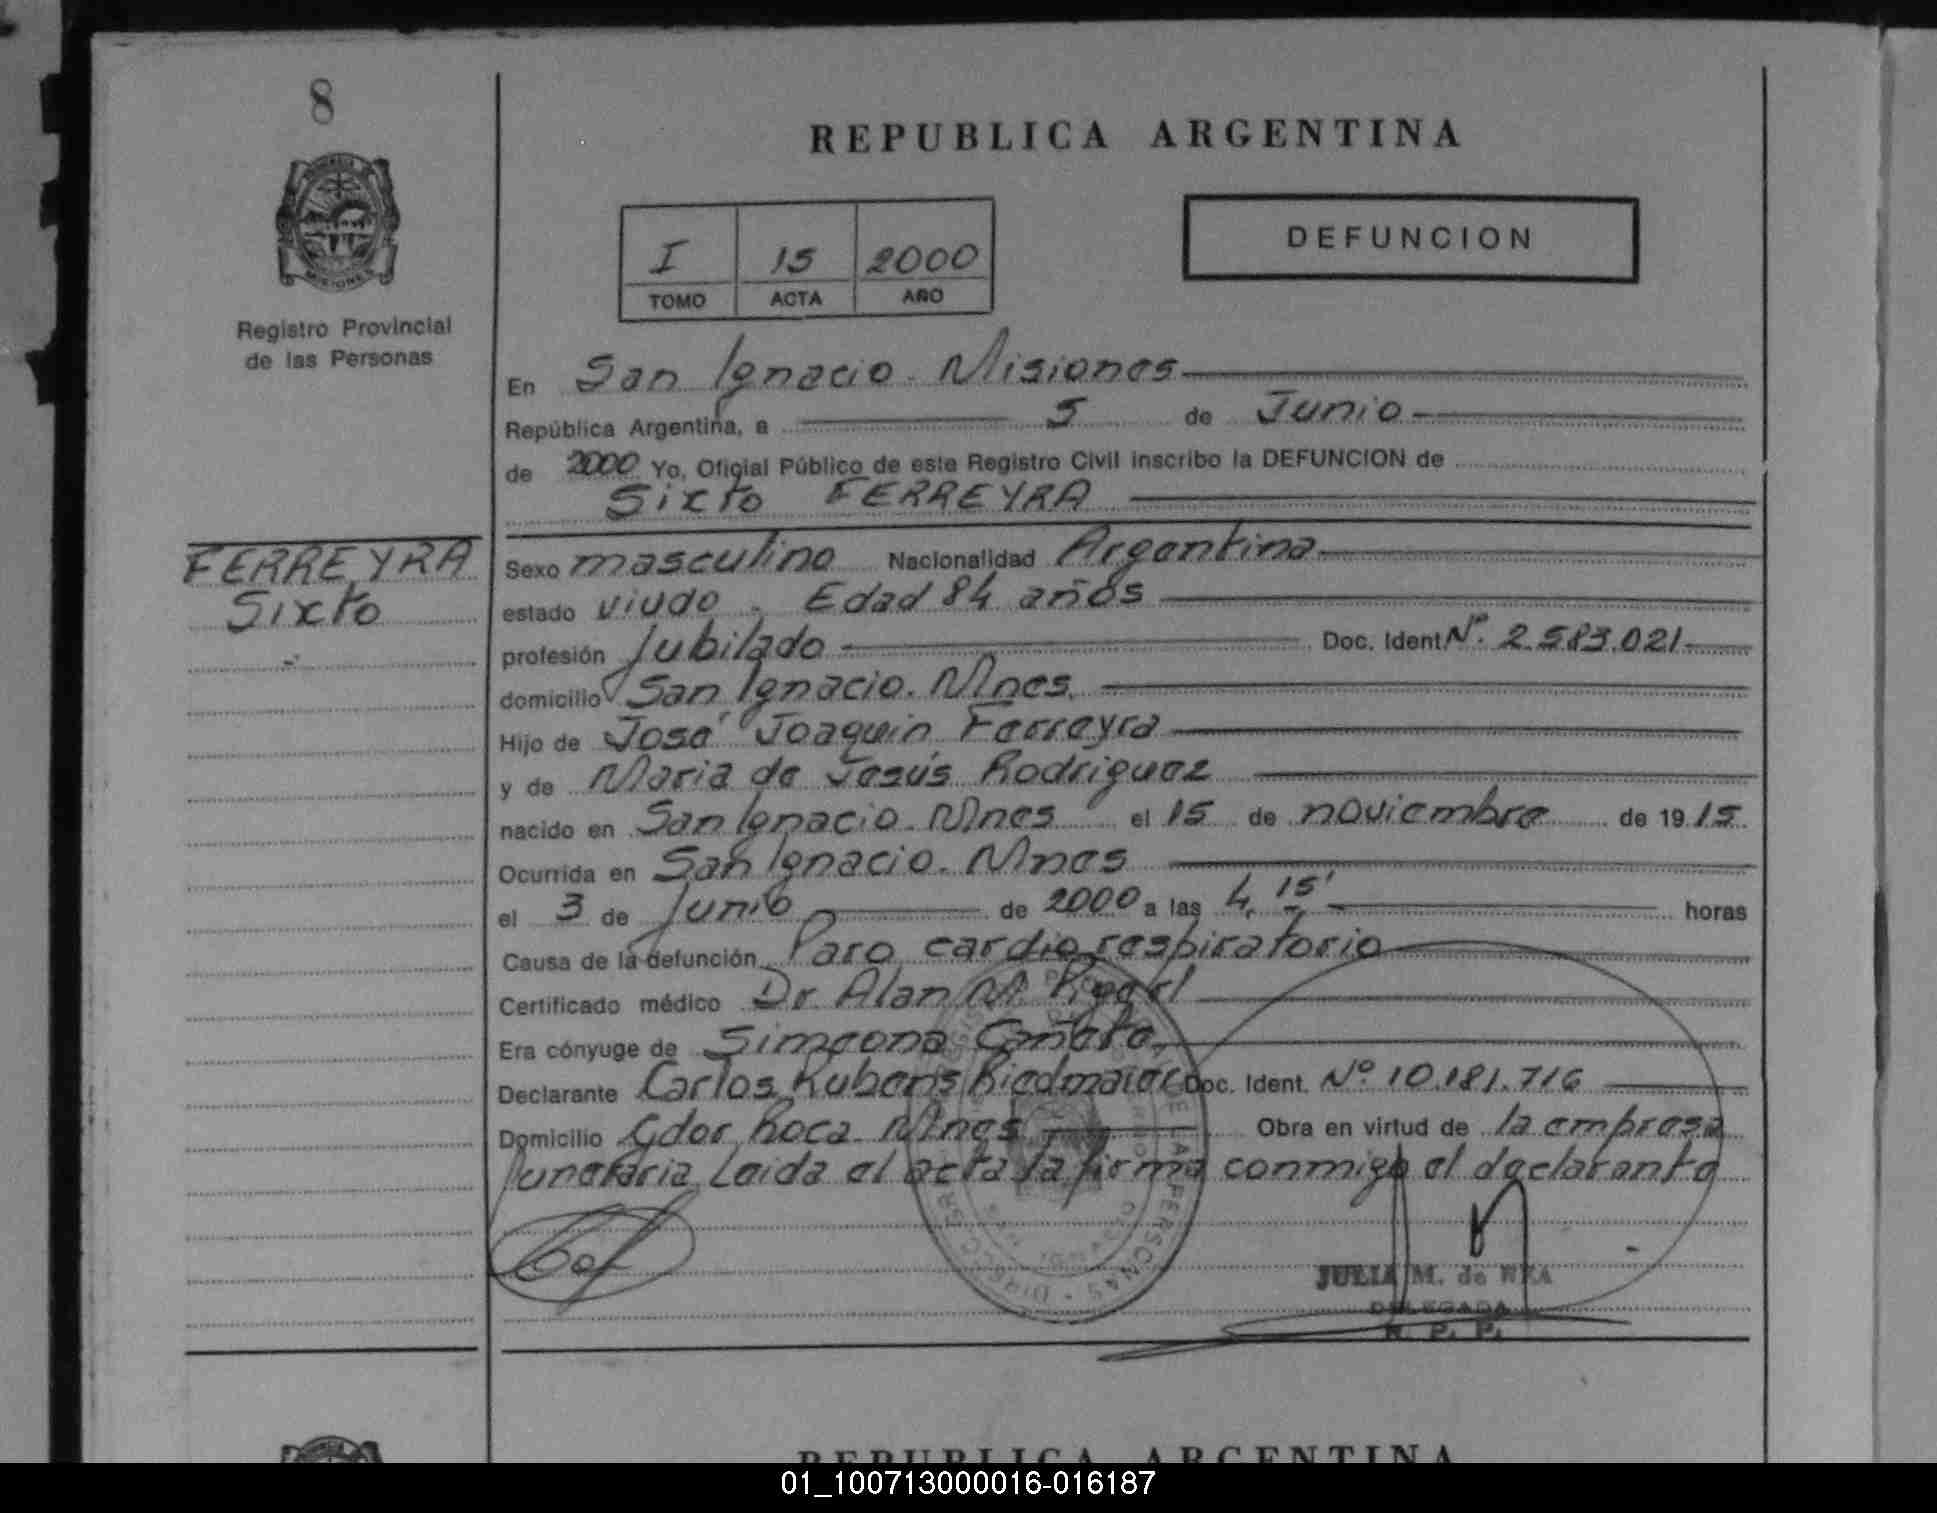 8
REPUBLICA ARGENTINA
DEFUNCION
I 15 2000
TOMO ACTA AÑO
MISIONES
Registro Provincial
de las Personas
En San Ignacio. Misiones
República Argentina, a 5 de Junio
de 2000 Yo, Oficial Público de este Registro Civil inscribo la DEFUNCION de
Sixto FERREYRA
FERREYRA
Sixto
Sexo masculino Nacionalidad Argentina
estado viudo. Edad 84 años
profesión Jubilado Doc. Ident Nº. 2.583.021
domicilio San Ignacio. Mnes.
Hijo de José Joaquin Ferreyra
y de Maria de Jesús Rodriguez
nacido en San Ignacio. Mnes el 15 de noviembre de 1915.
Ocurrida en San Ignacio. Mnes
el 3 de Junio de 2000 a las 4, 15' horas
Causa de la defunción Paro cardio respiratorio
Certificado médico Dr Alan M
Era cónyuge de Simeona Cañete
Declarante Carlos Rubens Riedmaier Doc. Ident. Nº 10.181.716
Domicilio Gdor Roca Mnes Obra en virtud de la empresa
funeraria Leida el acta la firma conmigo el declarante
DE LAS PERSONAS
JULIA M. de
DELEGADA
R. P. P.
REPUBLICA ARGENTINA
01_100713000016-016187